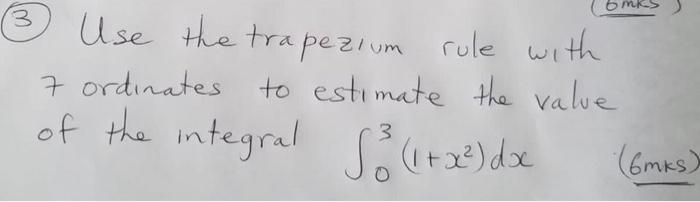 (6mks)
③ Use the trapezium rule with
7 ordinates to estimate the value
of the integral ∫₀³ (1+x²)dx (6mks)